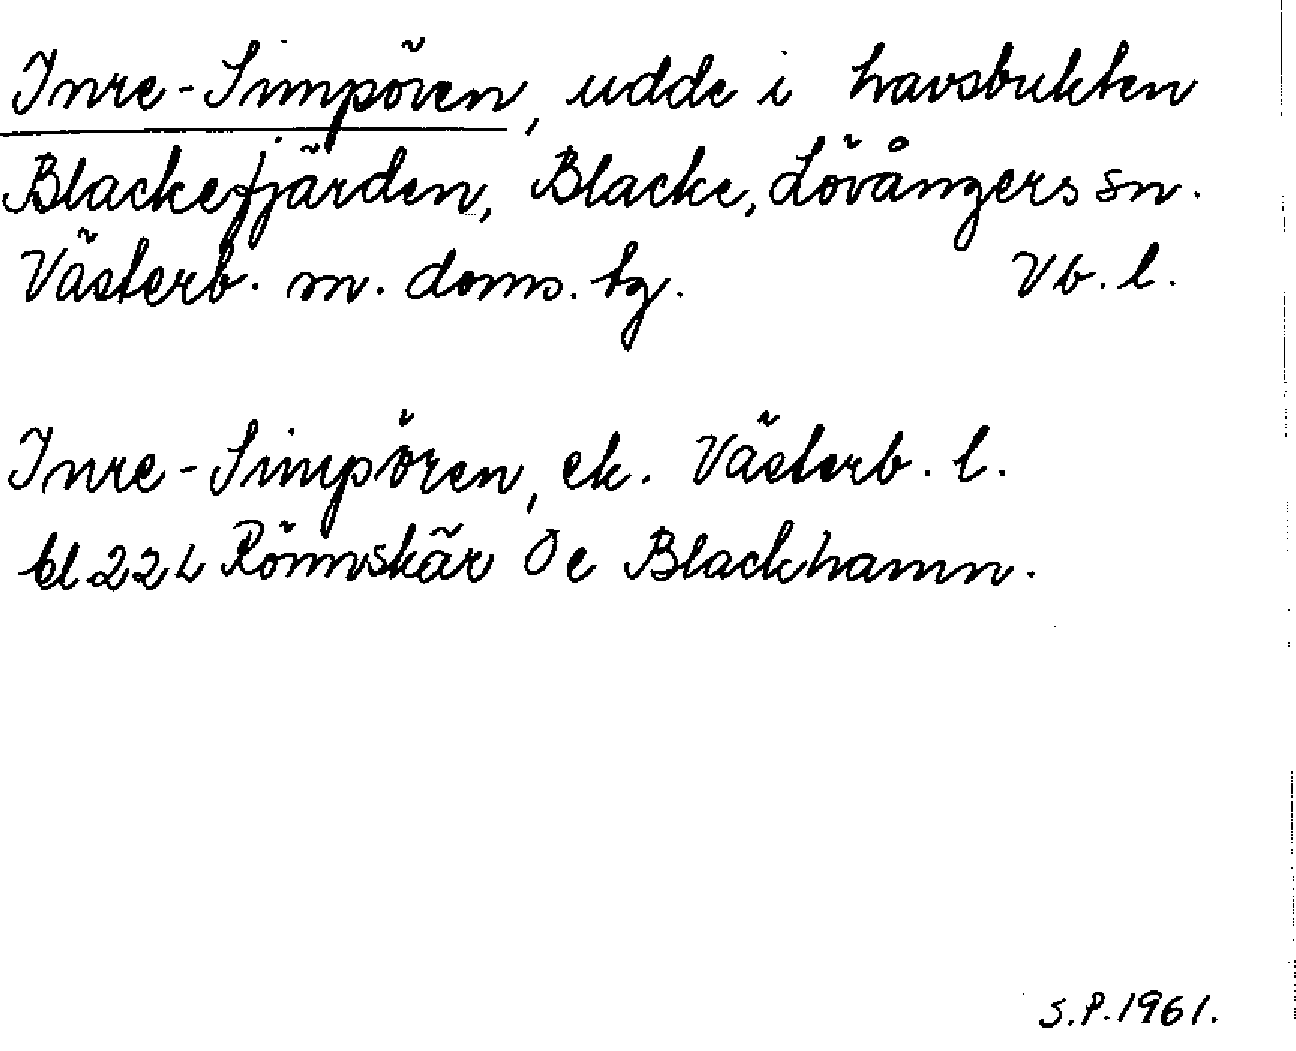 Inre-Simpören, udde i havsbukten
Blackefjärden, Blacke, Lövångers sn.
Västerb. m. doms. tg. Vb. l.
Inre-Simpören, ek. Västerb. l.
bl 22 L Rönnskär Oe Blackhamn.
S.P. 1961.